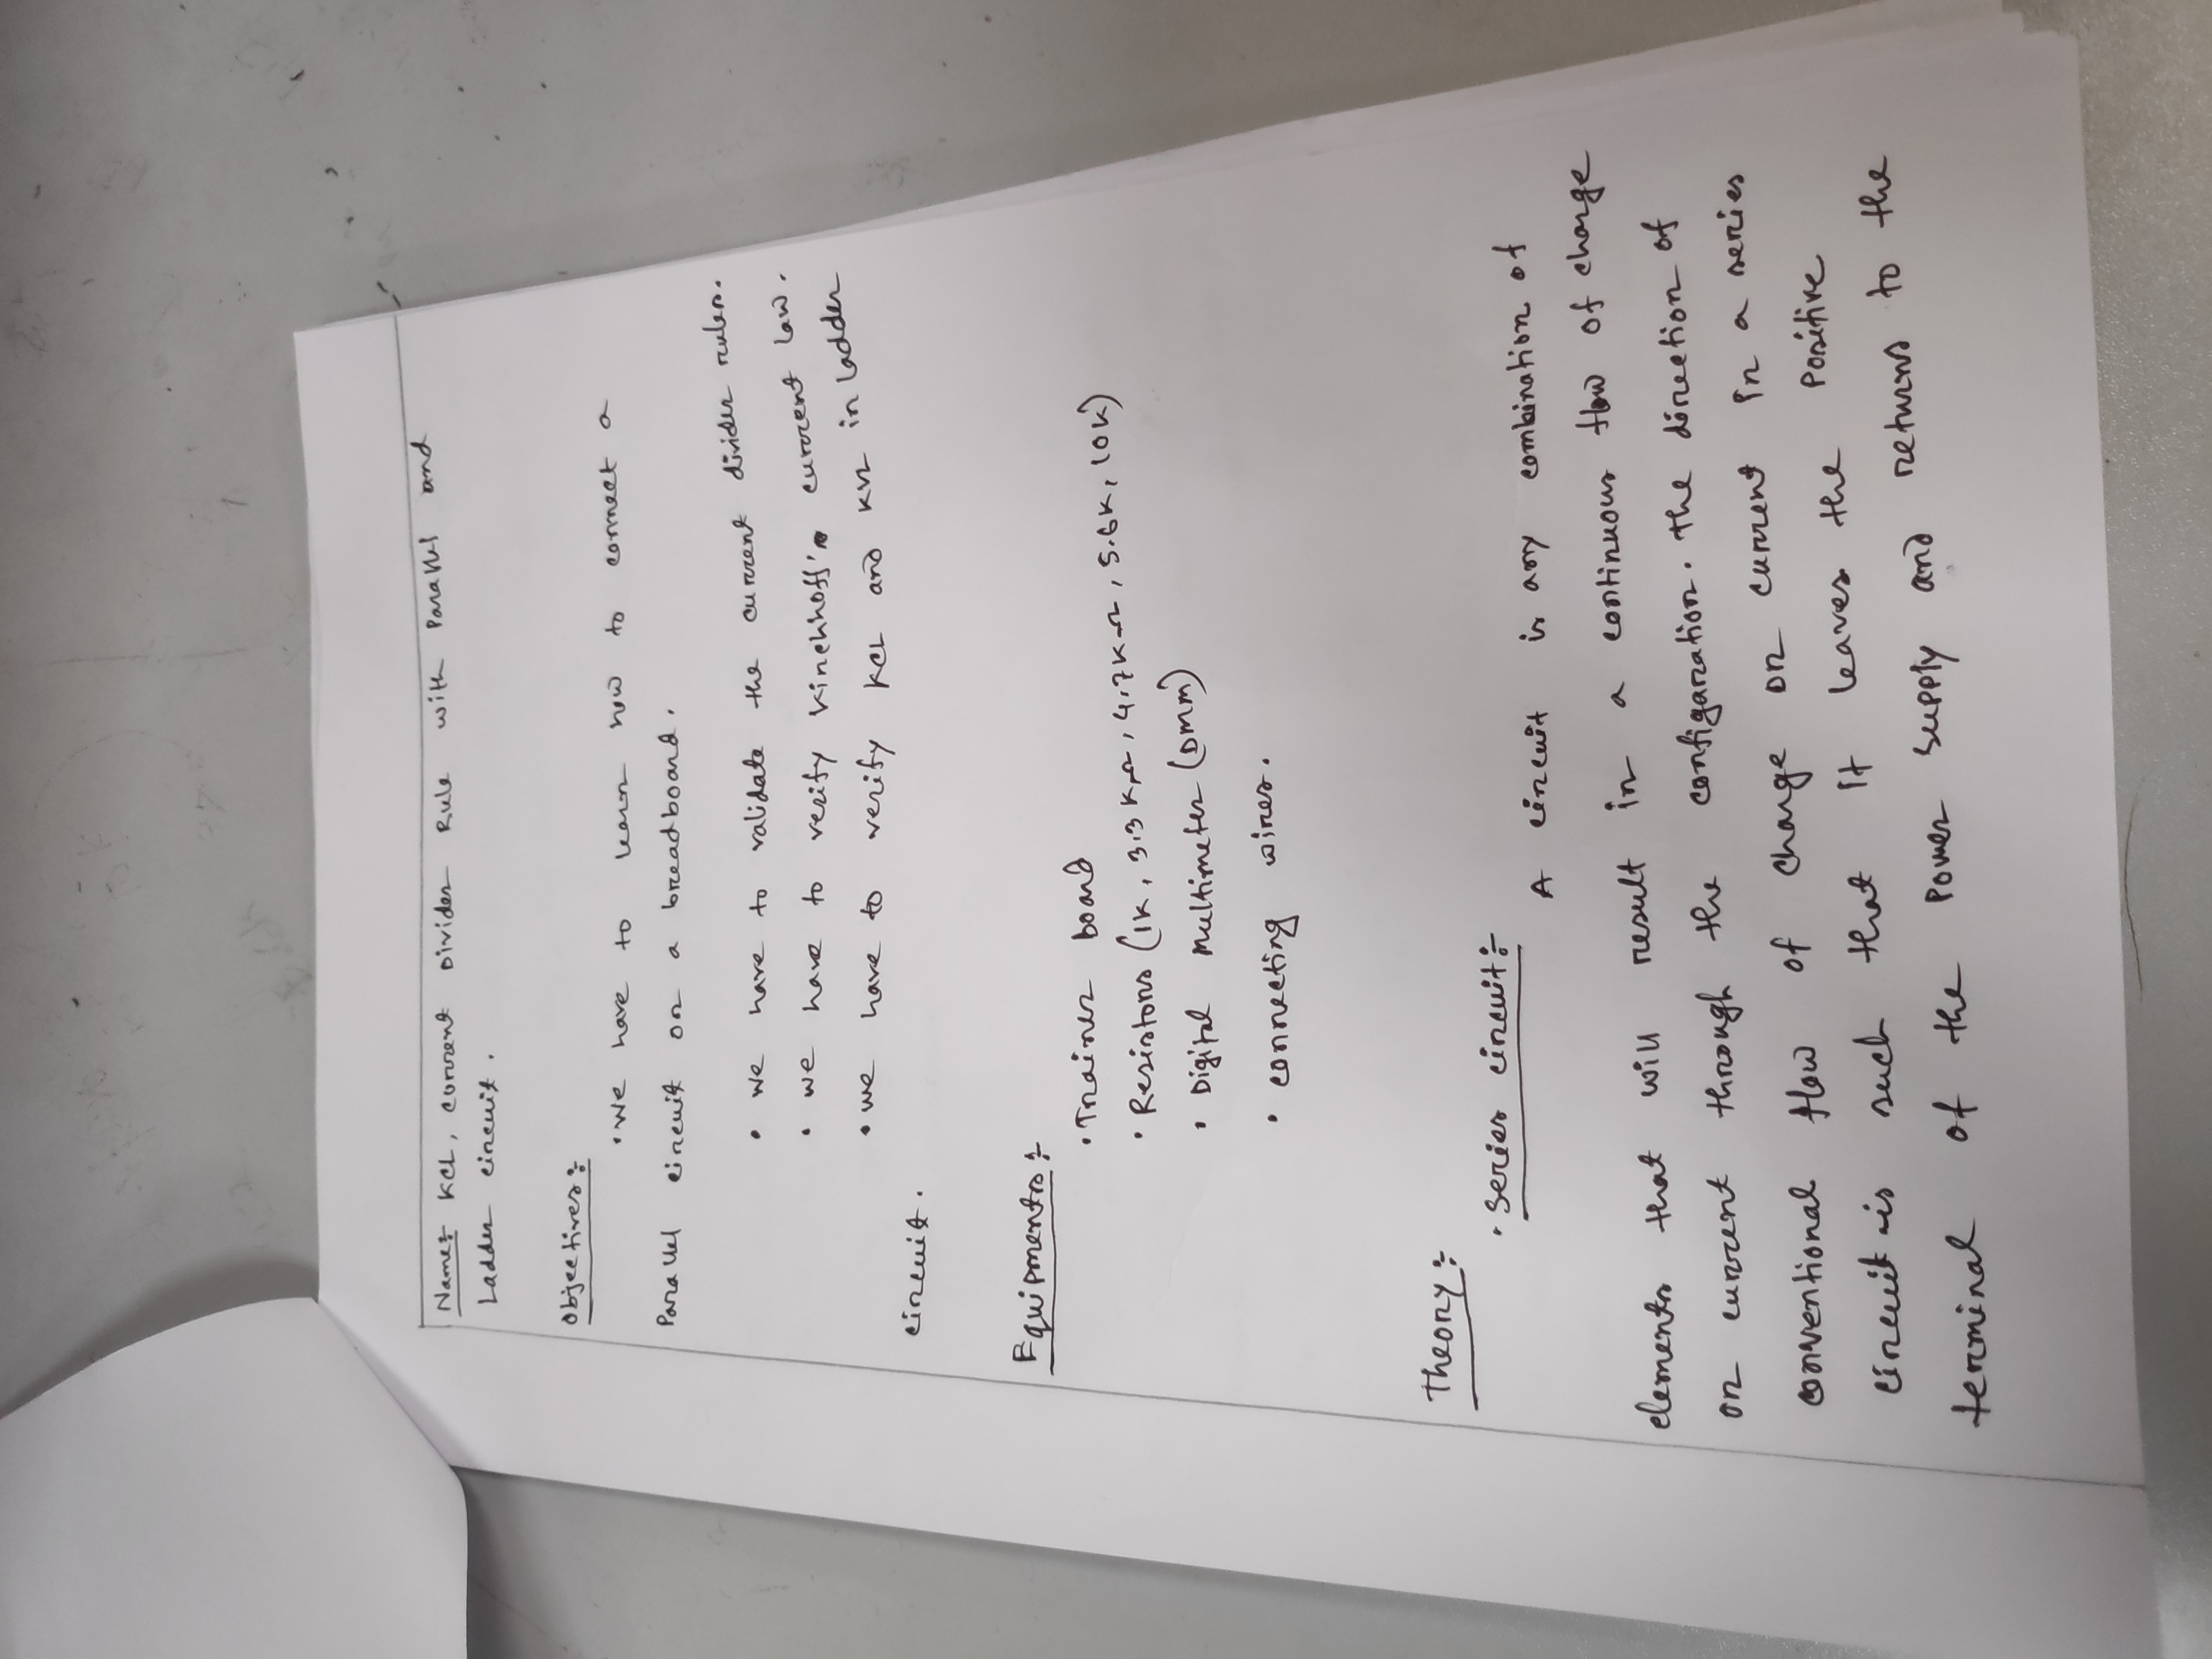 Name:- KCL, current Divider Rule with Parallel and
Ladder circuit.
Objectives:-
• We have to learn how to connect a
Parallel circuit on a breadboard.
• We have to validate the current divider rules.
• We have to verify Kirchhoff's current law.
• We have to verify KCL and KVL in ladder
circuit.
Equipments:-
• Trainer board
• Resistors (1K, 3.3KΩ, 4.7KΩ, 5.6K, 10K)
• Digital Multimeter (DMM)
• connecting wires.
Theory:-
• Series circuit:-
A circuit is any combination of
elements that will result in a continuous flow of charge
or current through the configaration. The direction of
conventional flow of charge or current in a series
circuit is such that it leaves the Positive
terminal of the Power Supply and returns to the